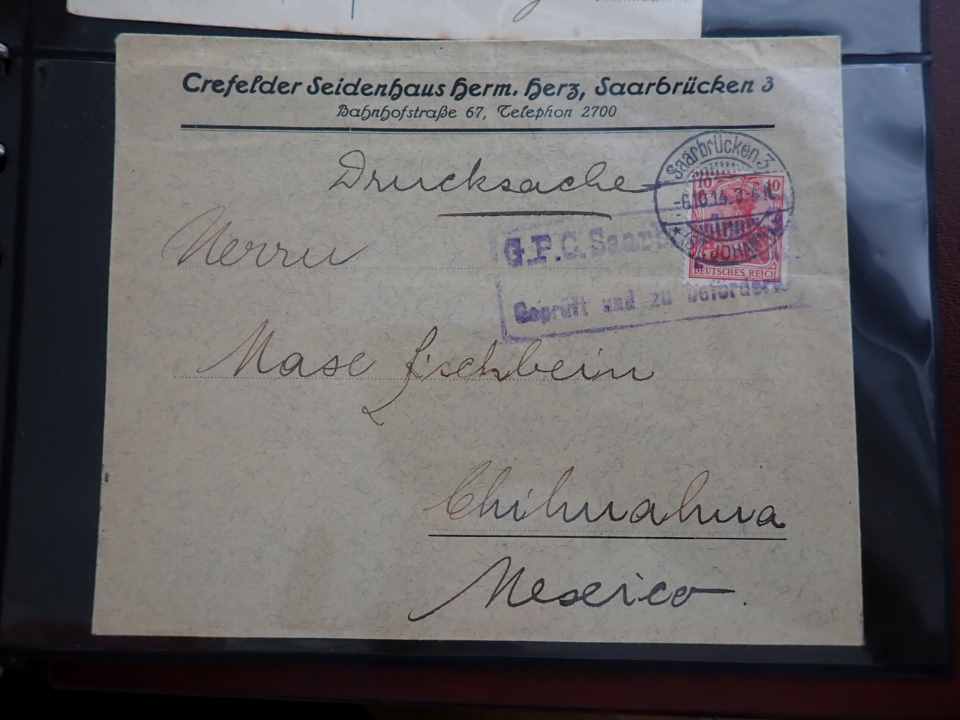 Crefelder Seidenhaus Herm. Herz, Saarbrücken 3
Bahnhofstraße 67, Telephon 2700
Drucksache
Saarbrücken 3
-6.10.14.
10 10
DEUTSCHES REICH
Herrn
G.P.C.
Geprüft und zu befördern.
Mase Fischbein
Chihuahua
Mexico.